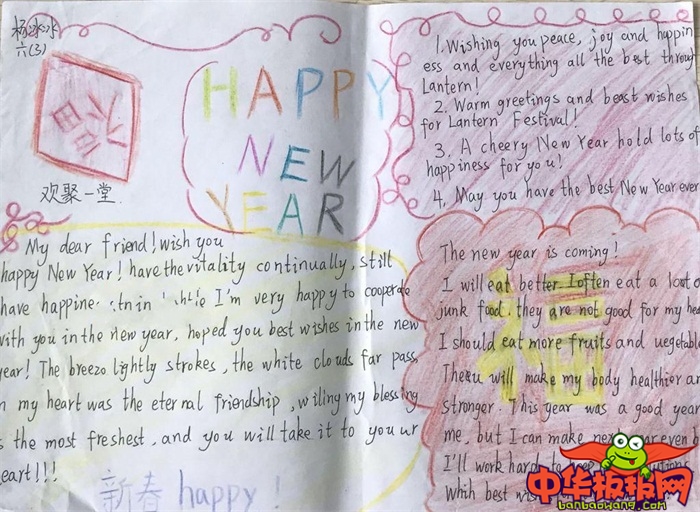 杨冰冰
六(3)
福
欢聚一堂
HAPPY
NEW
YEAR
My dear friend! wish you
happy New Year! have the vitality continually, still
have happine
I'm very happy to cooperate
with you in the new year, hoped you best wishes in the new
year! The breezo lightly strokes, the white clouds far pass,
n my heart was the eternal friendship, wiling my blessing
s the most freshest, and you will take it to youwr
eart!!!
新春 happy!
1. Wishing you peace, joy and happin
ess and everything all the best through
Lantern!
2. Warm greetings and best wishes
for Lantern Festival!
3. A cheery New Year hold lots of
happiness for you!
4. May you have the best New Year ever
The new year is coming!
I will eat better. I often eat a loot o
junk food. they are not good for my hea
I should eat more fruits and uegetable
will make my body healthier an
stronger. This year was a good year
me, but I can make
I'll work hard to
whih best
福
中华板报网
banbaowang.com